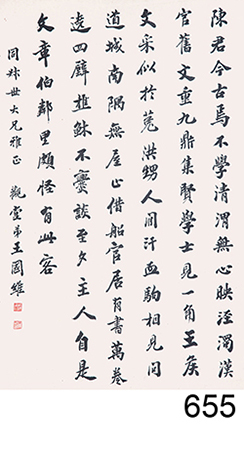 陳君今古焉不學清渭無心映涇濁漢
官舊文重九鼎集賢學士見一角王侯
文采似於菟洪甥人間汗血駒相見問
道城南隅無屋止借船官居有書萬卷
遶四壁樵穌不爨談至夕主人自是
文章伯鄰里頗怪有此客
同叔世大兄雅正 觀堂弟王國維
655